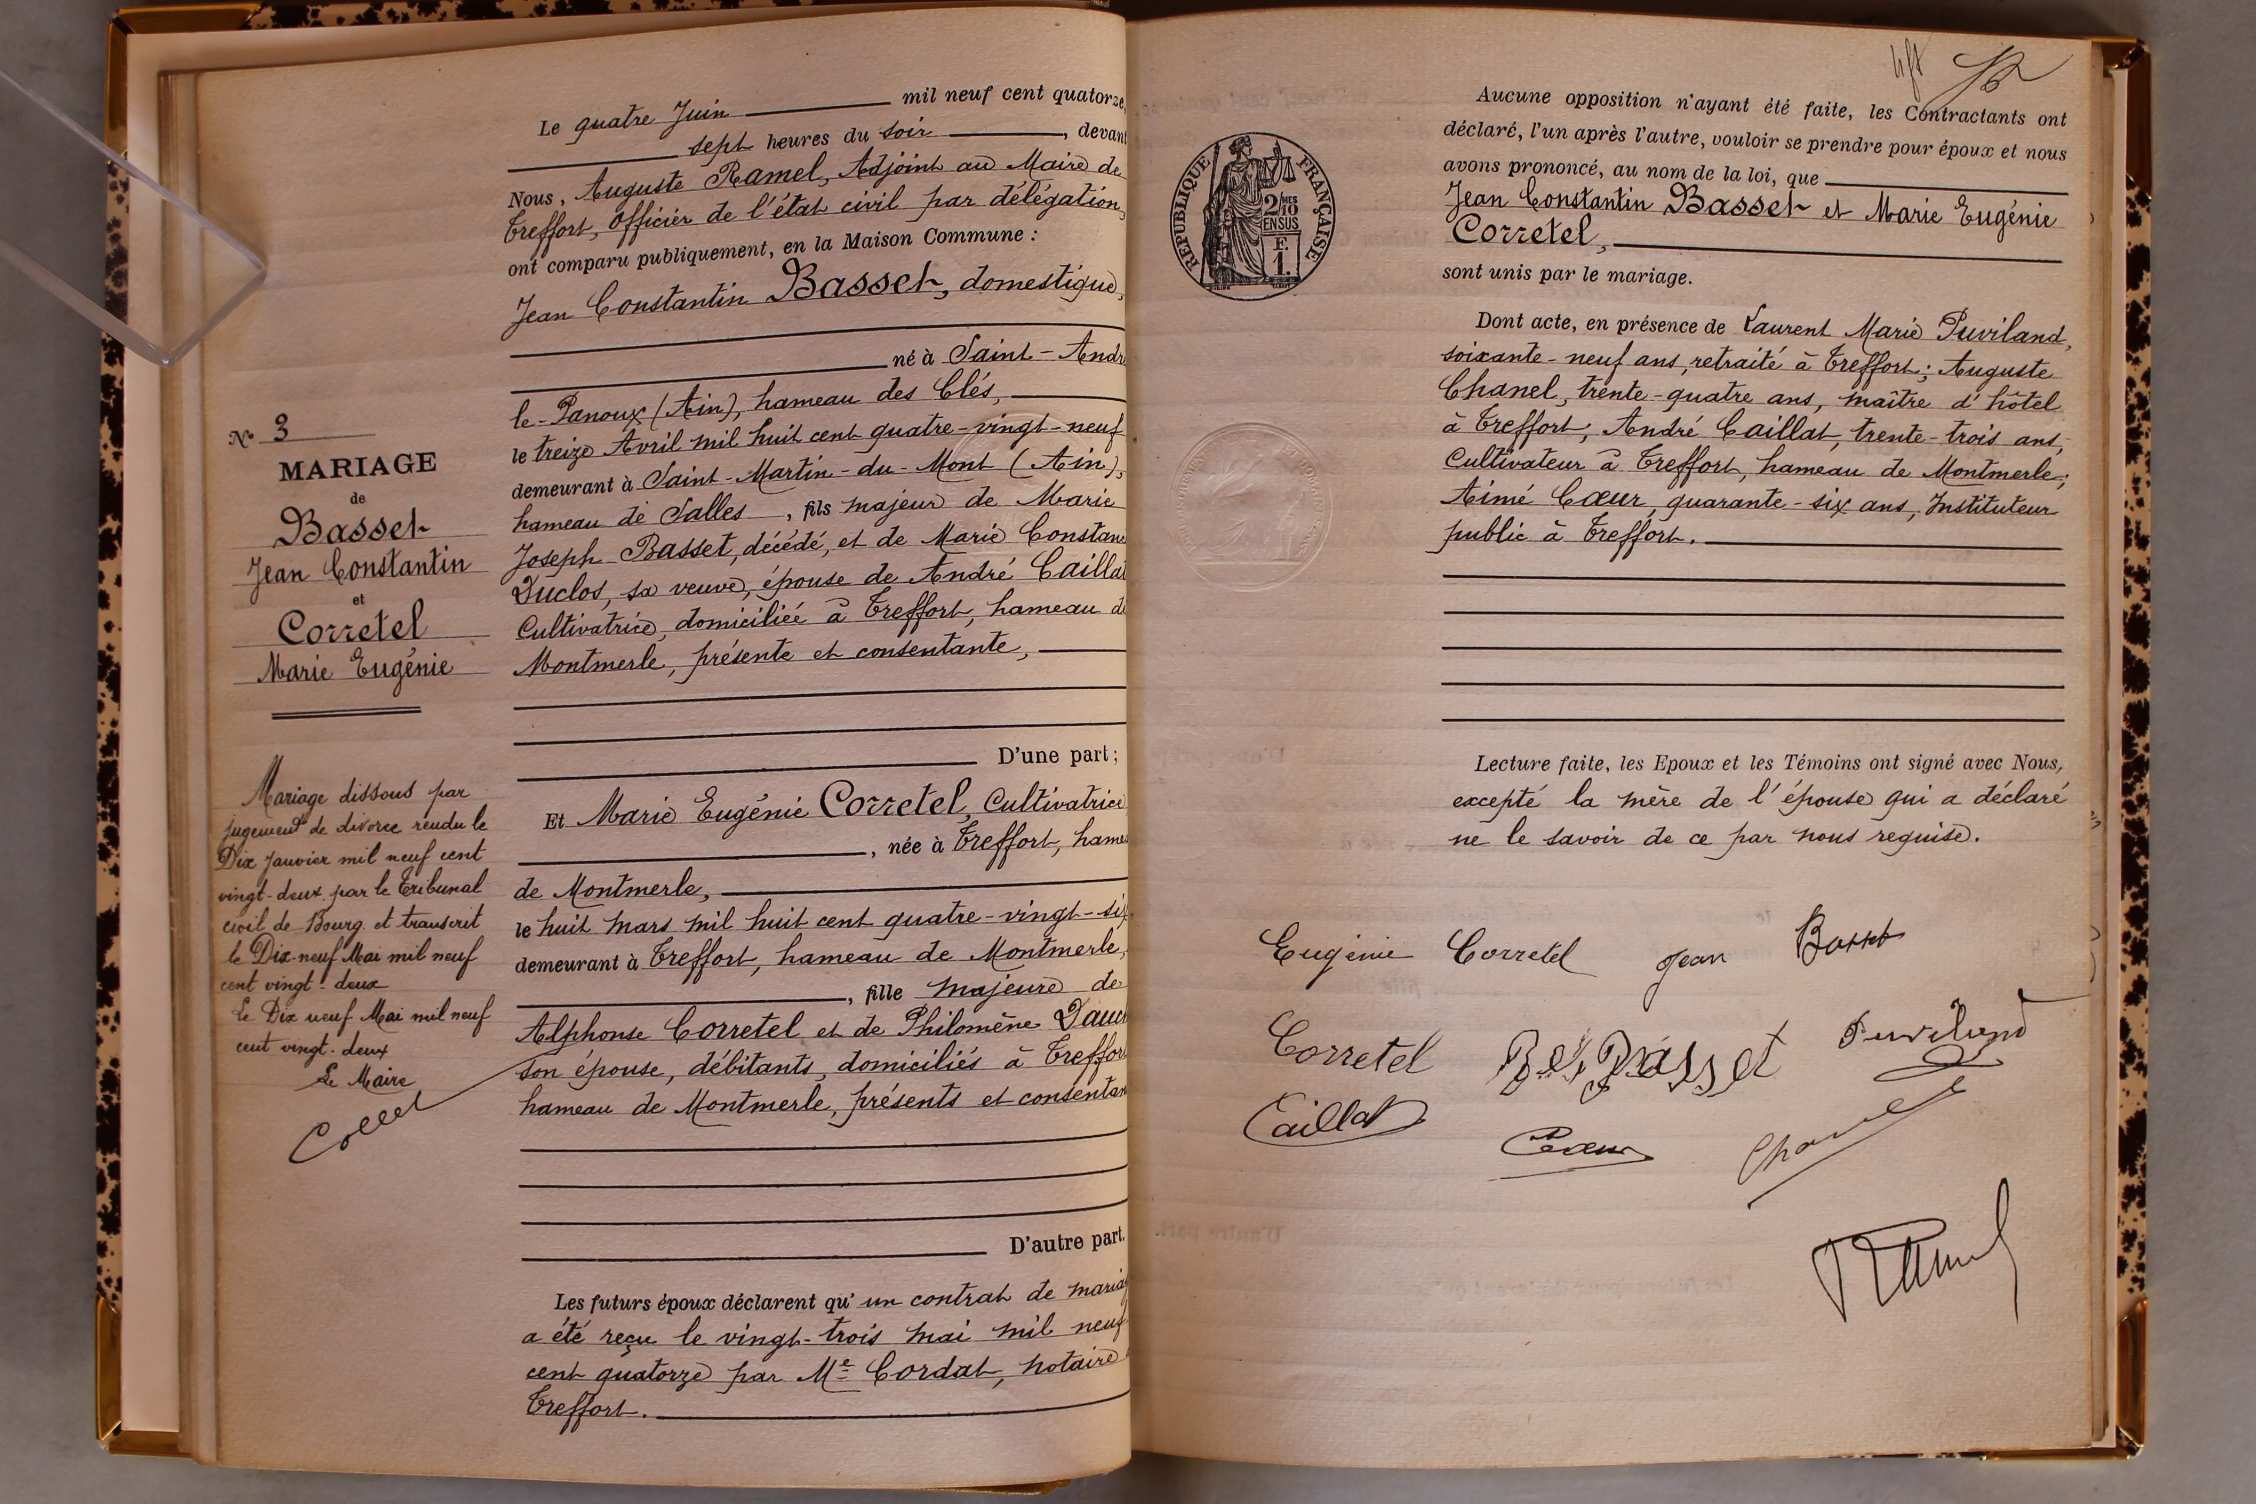 Le quatre Juin mil neuf cent quatorze,
sept heures du soir, devant
Nous, Auguste Ramel, Adjoint au Maire de
Treffort, officier de l'état civil par délégation,
ont comparu publiquement, en la Maison Commune :
Jean Constantin Basset, domestique,
né à Saint-Andr
le-Panoux (Ain), hameau des Clés,
le treize Avril mil huit cent quatre-vingt-neuf
demeurant à Saint-Martin-du-Mont (Ain),
hameau de Salles, fils majeur de Marie
Joseph Basset, décédé, et de Marie Constan
Duclos, sa veuve, épouse de André Caillat
Cultivatrice, domiciliée à Treffort, hameau de
Montmerle, présente et consentante,
D'une part ;
Et Marie Eugénie Corretel, Cultivatrice
, née à Treffort, hame
de Montmerle,
le huit mars mil huit cent quatre-vingt-six
demeurant à Treffort, hameau de Montmerle,
, fille majeure de
Alphonse Corretel et de Philomène
son épouse, débitants, domiciliés à Treffort
hameau de Montmerle, présents et consentan
D'autre part.
Les futurs époux déclarent qu'un contrat de maria
a été reçu le vingt-trois mai mil neuf
cent quatorze par Me Cordat, notaire
Treffort.
N° 3
MARIAGE
de
Basset
Jean Constantin
et
Corretel
Marie Eugénie
Mariage dissous par
jugement de divorce rendu le
Dix Janvier mil neuf cent
vingt-deux par le Tribunal
civil de Bourg et transcrit
le Dix-neuf Mai mil neuf
cent vingt-deux
Le Dix neuf Mai mil neuf
cent vingt-deux
Le Maire
Collet
RÉPUBLIQUE FRANÇAISE
2 MES
10
EN SUS
F.
1.
Aucune opposition n'ayant été faite, les Contractants ont
déclaré, l'un après l'autre, vouloir se prendre pour époux et nous
avons prononcé, au nom de la loi, que
Jean Constantin Basset et Marie Eugénie
Corretel,
sont unis par le mariage.
Dont acte, en présence de Laurent Marie Puviland,
soixante-neuf ans, retraité à Treffort ; Auguste
Chanel, trente-quatre ans, maître d'hôtel
à Treffort, André Caillat, trente-trois ans,
Cultivateur à Treffort, hameau de Montmerle ;
Aimé Cœur, quarante-six ans, Instituteur
public à Treffort.
Lecture faite, les Epoux et les Témoins ont signé avec Nous,
excepté la mère de l'épouse qui a déclaré
ne le savoir de ce par nous requise.
Eugénie Corretel Jean Basset
Corretel Basset Puviland
Caillat Cœur Chanel
Ramel